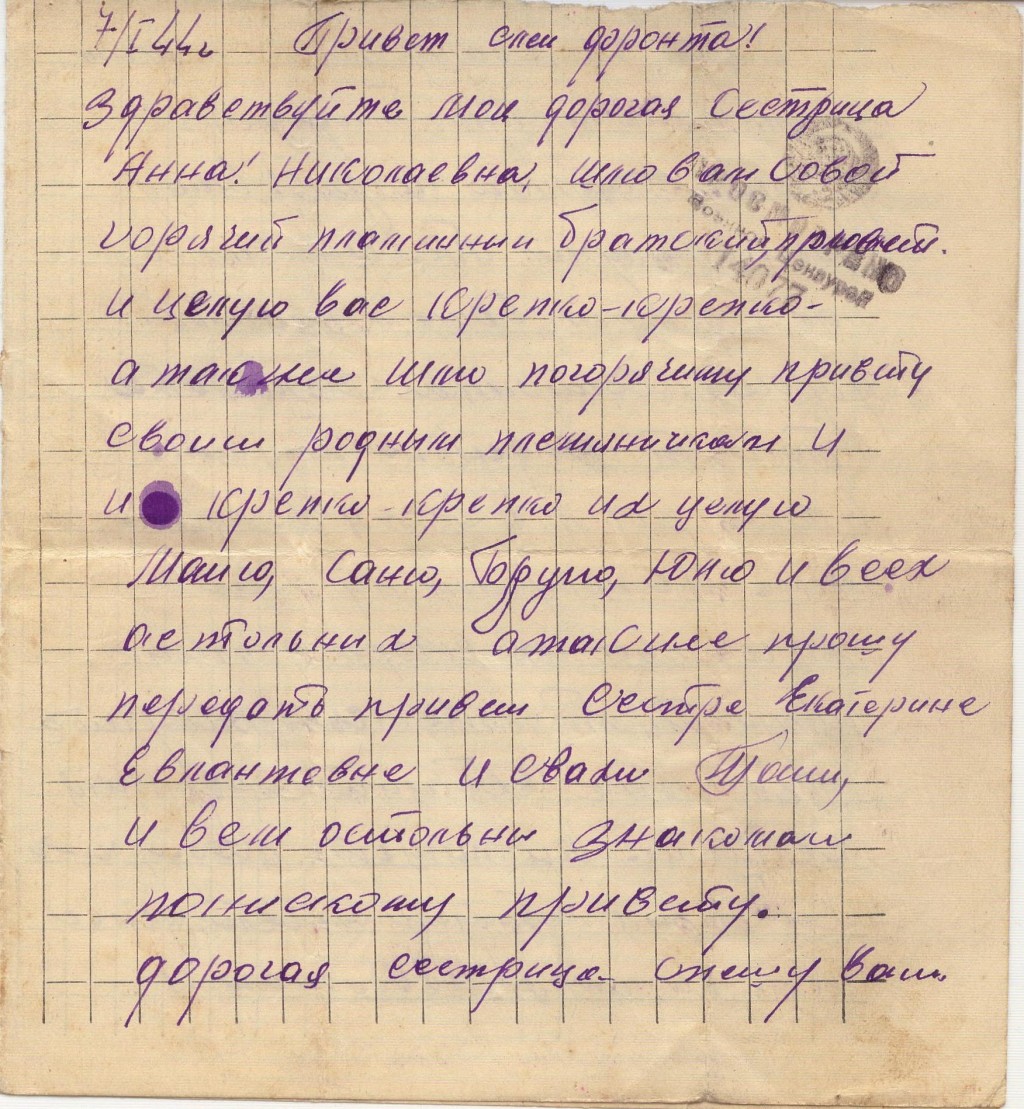 7/I 44г Привет с фронта!
Здравствуйте моя дорогая Сестрица
Анна! Николаевна, шлю вам Совой
горячий пламинный братский привет.
и целую вас крепко-крепко-
а также шлю погорячиму привету
своим родным племяничкам и
и крепко-крепко их целую
Маию, Саню, Юлю и всех
астольних а также прошу
передать привет Сестре Екатерине
Евлантевне и свахи Таши,
и всем остольни знакомам
понискому привету.
дорогая сестрица спешу вам
Просмотрено
Военной Цензурой
14077